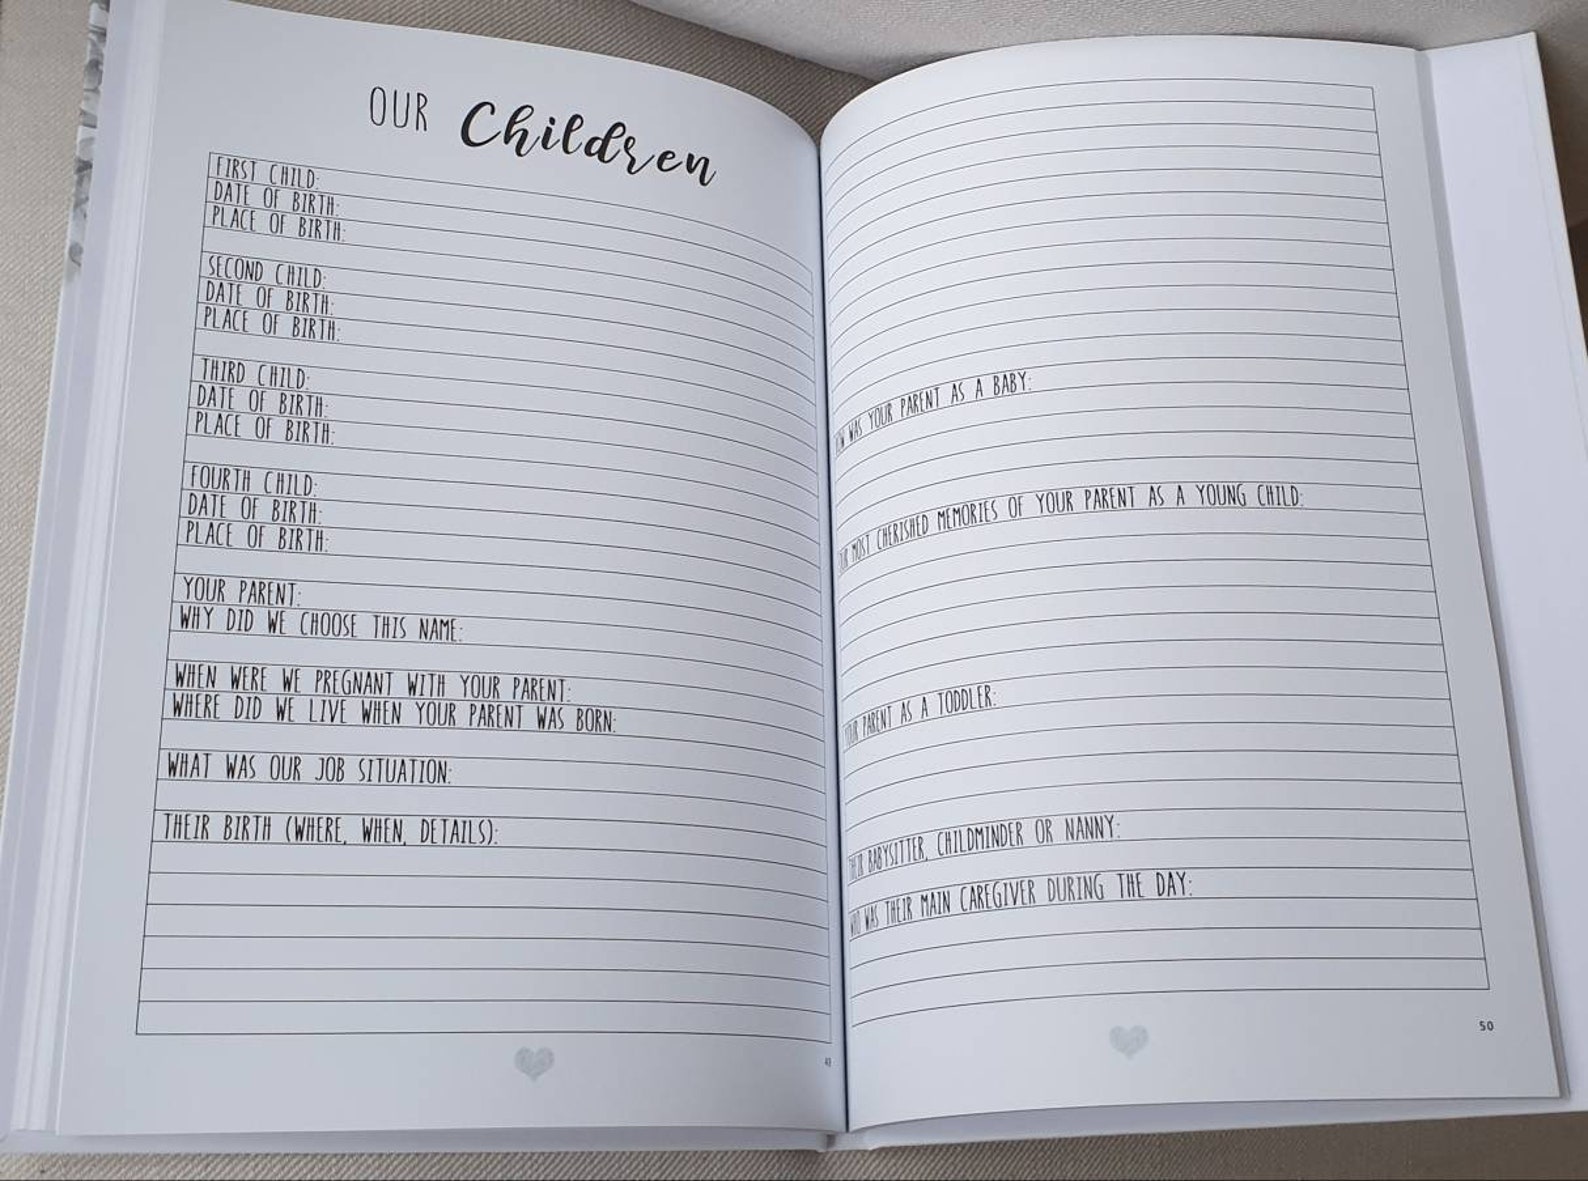 OUR Children
FIRST CHILD:
DATE OF BIRTH:
PLACE OF BIRTH:
SECOND CHILD:
DATE OF BIRTH:
PLACE OF BIRTH:
THIRD CHILD:
DATE OF BIRTH:
PLACE OF BIRTH:
FOURTH CHILD:
DATE OF BIRTH:
PLACE OF BIRTH:
YOUR PARENT:
WHY DID WE CHOOSE THIS NAME:
WHEN WERE WE PREGNANT WITH YOUR PARENT:
WHERE DID WE LIVE WHEN YOUR PARENT WAS BORN:
WHAT WAS OUR JOB SITUATION:
THEIR BIRTH (WHERE, WHEN, DETAILS):
WAS YOUR PARENT AS A BABY:
MOST CHERISHED MEMORIES OF YOUR PARENT AS A YOUNG CHILD:
YOUR PARENT AS A TODDLER:
THEIR BABYSITTER, CHILDMINDER OR NANNY:
WHO WAS THEIR MAIN CAREGIVER DURING THE DAY:
50